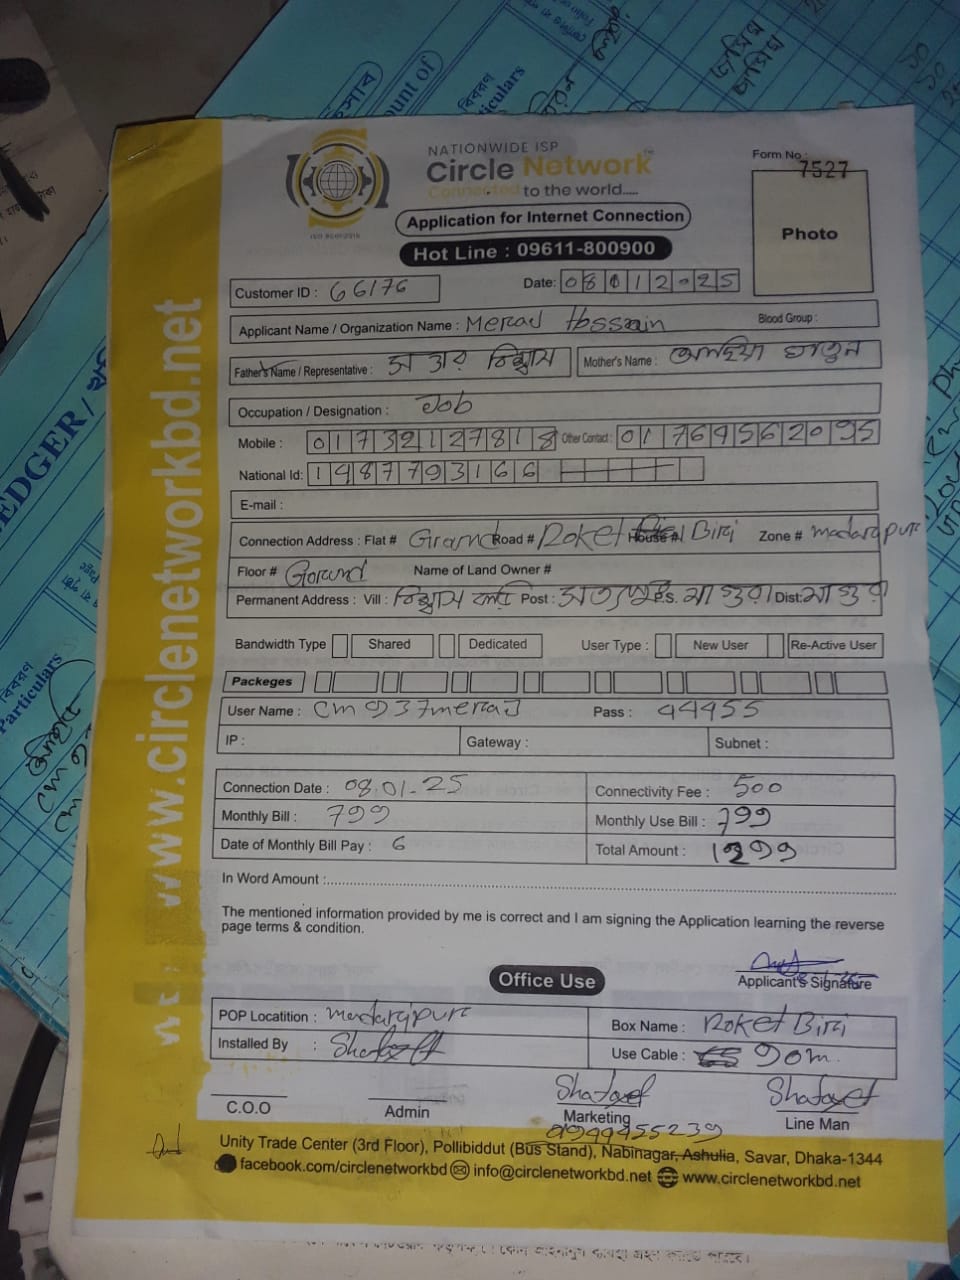 NATIONWIDE ISP
Circle Network™
Connected to the world.....
Form No : 7527
Application for Internet Connection
Photo
Hot Line : 09611-800900
Customer ID : 66176
Date: 08012025
Applicant Name / Organization Name : Merad Hossain
Blood Group :
Father's Name / Representative : বিশ্বাস
Mother's Name : খাতুন
Occupation / Designation : Job
Mobile : 01732127818 Other Contact : 01769562095
National Id: 1987793166
E-mail :
Connection Address : Flat # Road # Roket House # Biri Zone # madarapure
Floor # Gorund Name of Land Owner #
Permanent Address : Vill : বিশ্বাস Post : P.S. মাগুরা Dist: মাগুরা
Bandwidth Type Shared Dedicated User Type : New User Re-Active User
Packeges
User Name : cm937merad Pass : 44455
IP : Gateway : Subnet :
Connection Date : 08.01-25 Connectivity Fee : 500
Monthly Bill : 799 Monthly Use Bill : 799
Date of Monthly Bill Pay : 6 Total Amount : 1299
In Word Amount :
The mentioned information provided by me is correct and I am signing the Application learning the reverse
page terms & condition.
Applicant's Signature
Office Use
POP Locatition : madarapure Box Name : Roket Biri
Installed By : Use Cable : 90m.
Shafayet Shafayet
C.O.O Admin Marketing Line Man
Unity Trade Center (3rd Floor), Pollibiddut (Bus Stand), Nabinagar, Ashulia, Savar, Dhaka-1344
facebook.com/circlenetworkbd info@circlenetworkbd.net www.circlenetworkbd.net
www.circlenetworkbd.net
LEDGER /
Particulars
বিবরণ
Particulars
বিবরণ